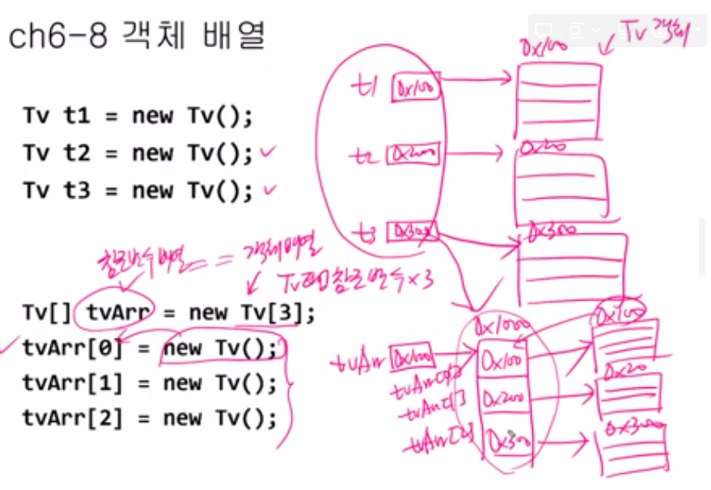 ch6-8 객체 배열
0x100
Tv 객체
Tv t1 = new Tv();
t1 0x100
Tv t2 = new Tv();
t2 0x200
0x200
Tv t3 = new Tv();
t3 0x300
0x300
참조변수 배열 == 객체배열
Tv타입 참조변수×3
Tv[] tvArr = new Tv[3];
0x1000
0x100
tvArr[0] = new Tv();
tvArr 0x1000
0x100
tvArr[0]
tvArr[1] = new Tv();
tvArr[1]
0x200
0x200
tvArr[2] = new Tv();
tvArr[2]
0x300
0x300